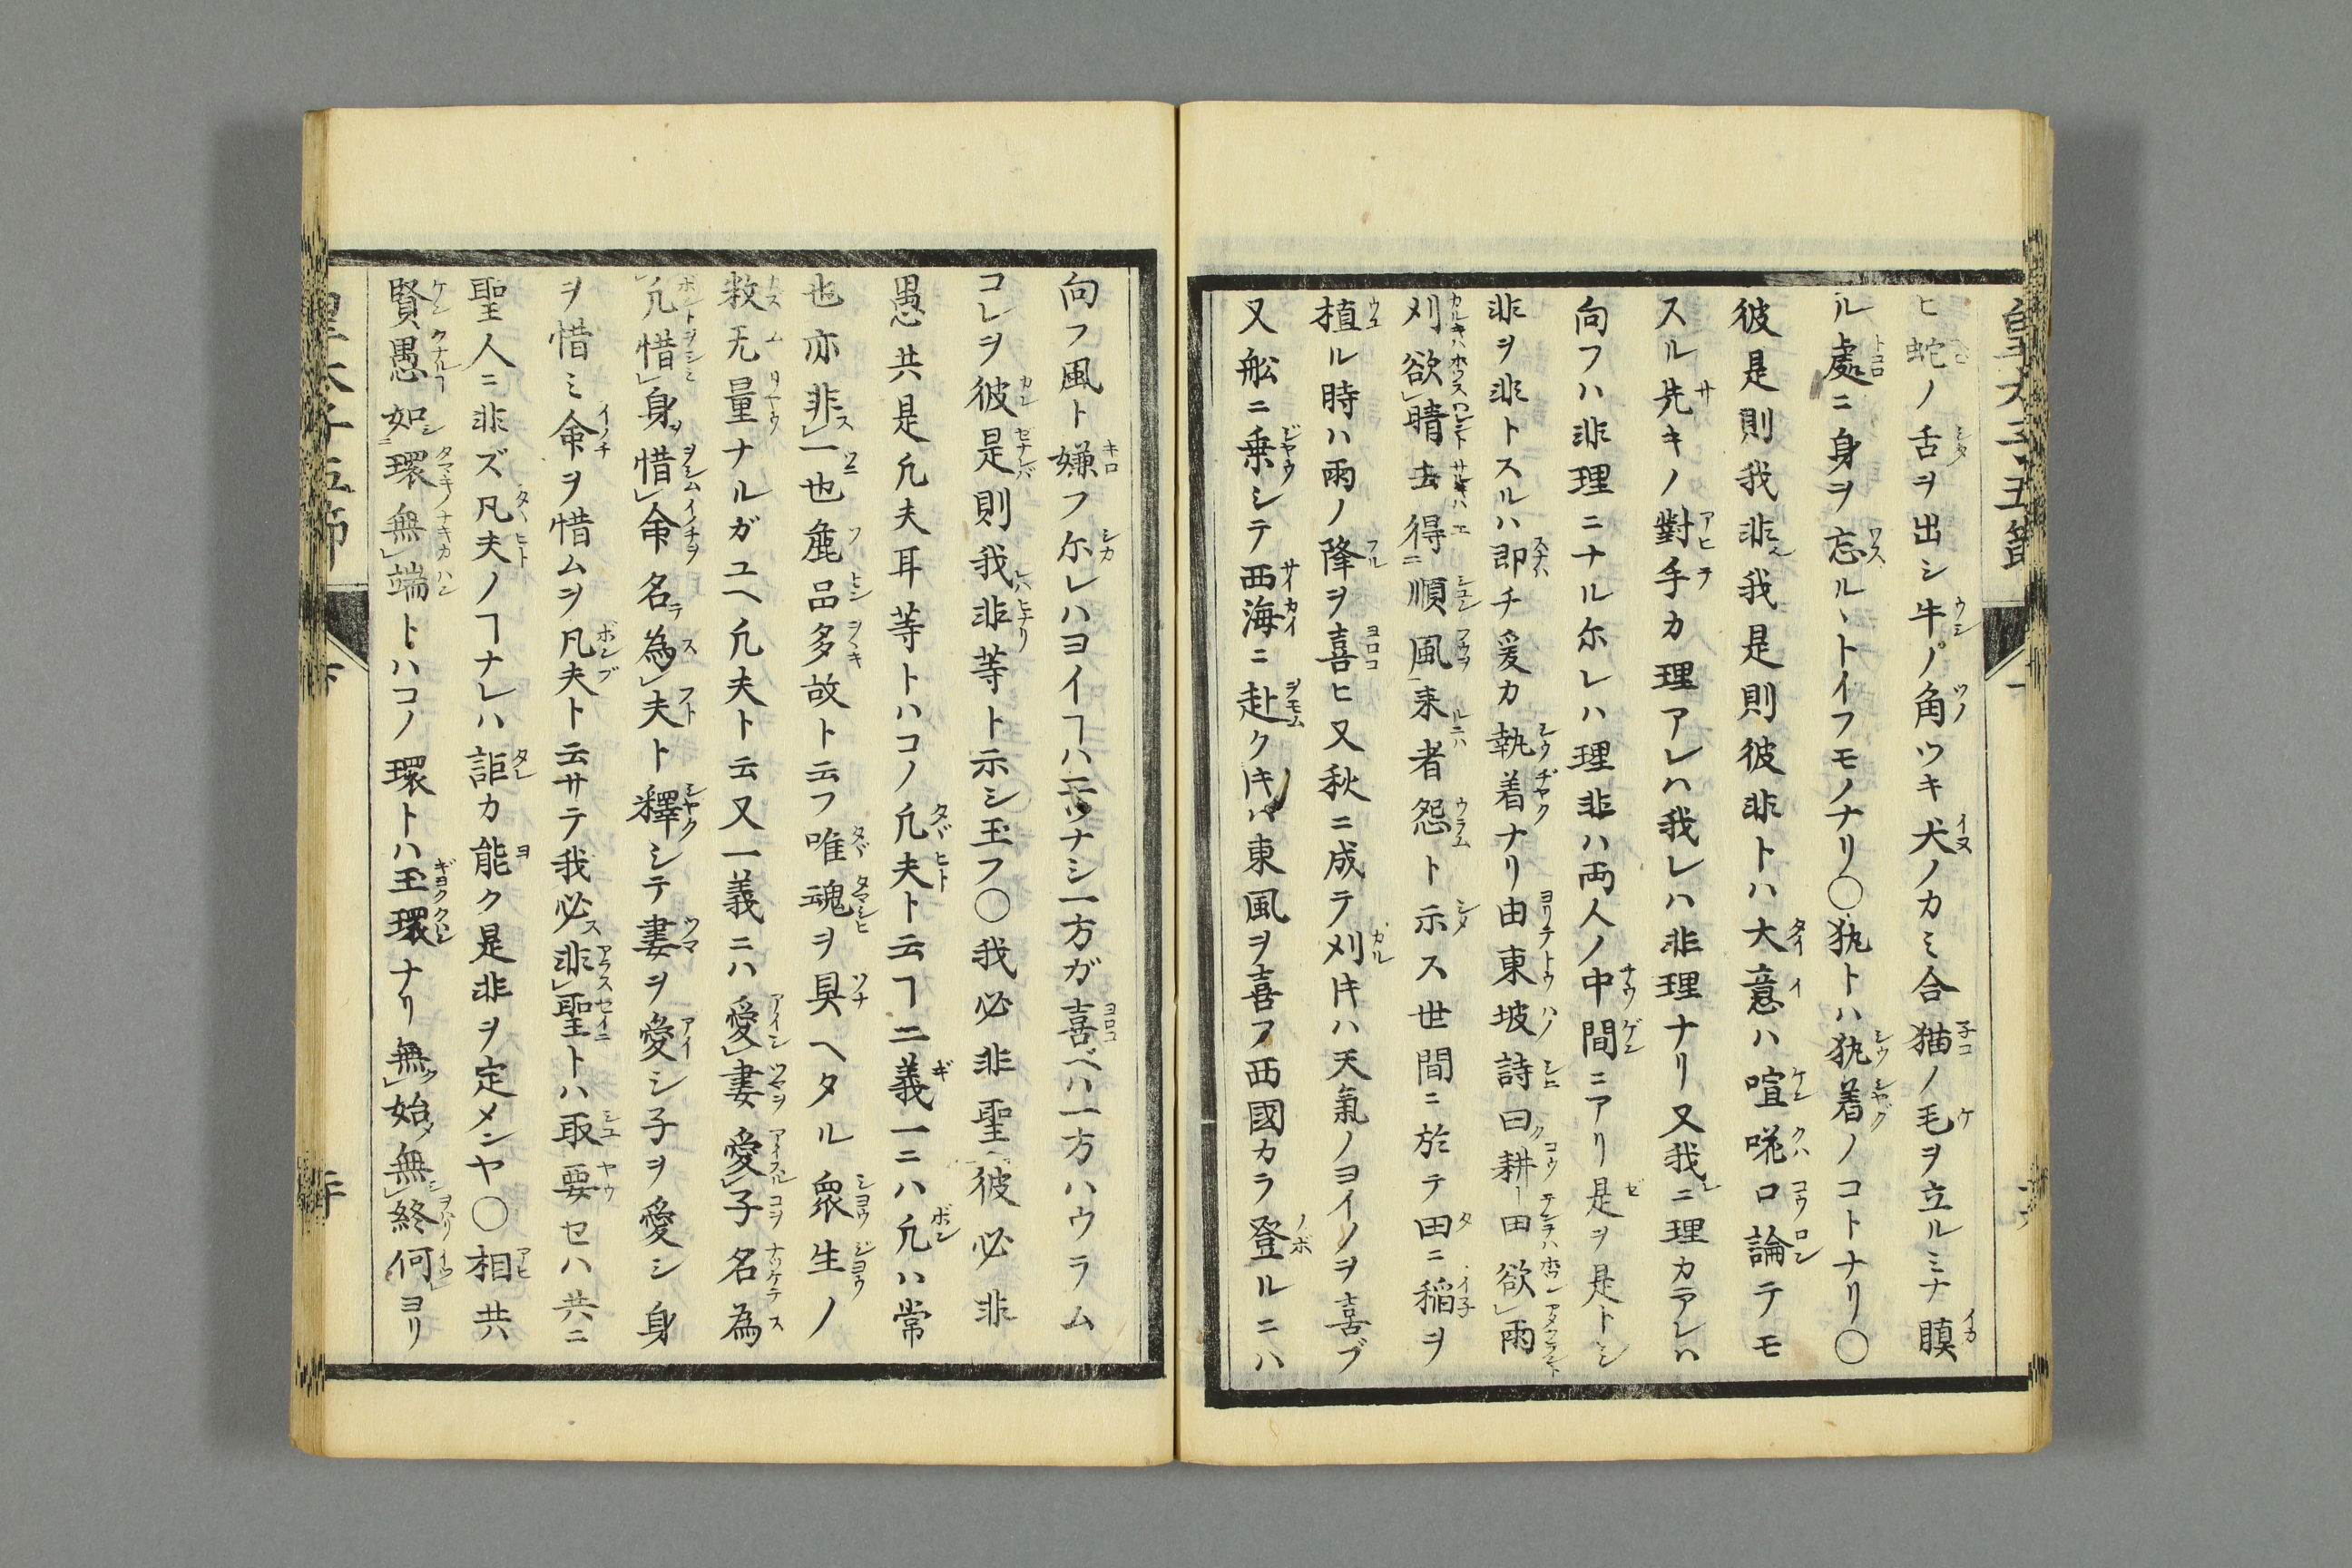 ヒ蛇ノ舌ヲ出シ牛ノ角ツキ犬ノカミ合猫ノ毛ヲ立ルミナ瞋
ル處ニ身ヲ忘ルヽトイフモノナリ〇執トハ執着ノコトナリ〇
彼是則我非我是則彼非トハ大意ハ喧𠵅口論テモ
スル先キノ對手カ理アレハ我レハ非理ナリ又我ニ理カアレハ
向フハ非理ニナル尓レハ理非ハ両人ノ中間ニアリ是ヲ是トシ
非ヲ非トスルハ即チ爰カ執着ナリ由東坡詩曰耕田欲雨
刈欲晴去得順風来者怨ト示ス世間ニ於テ田ニ稲ヲ
植ル時ハ雨ノ降ヲ喜ヒ又秋ニ成テ刈𪜈ハ天氣ノヨイノヲ喜ブ
又舩ニ乗シテ西海ニ赴ク𪜈ハ東風ヲ喜フ西國カラ登ルニハ
向フ風ト嫌フ尓レハヨイヿハ二ツナシ一方ガ喜ベハ一方ハウラム
コレヲ彼是則我非等ト示シ玉フ〇我必非聖彼必非
愚共是凢夫耳等トハコノ凢夫ト云ヿ二義一ニハ凢ハ常
也亦非一也麁品多故ト云フ唯魂ヲ具ヘタル衆生ノ
数无量ナルガユヘ凢夫ト云又一義ニハ愛妻愛子名為
凢惜身惜命名為夫ト釋シテ妻ヲ愛シ子ヲ愛シ身
ヲ惜ミ命ヲ惜ムヲ凡夫ト云サテ我必非聖トハ取要セハ共ニ
聖人ニ非ズ凡夫ノヿナレハ詎カ能ク是非ヲ定メンヤ〇相共
賢愚如環無端トハコノ環トハ玉環ナリ無始無終何ヨリ